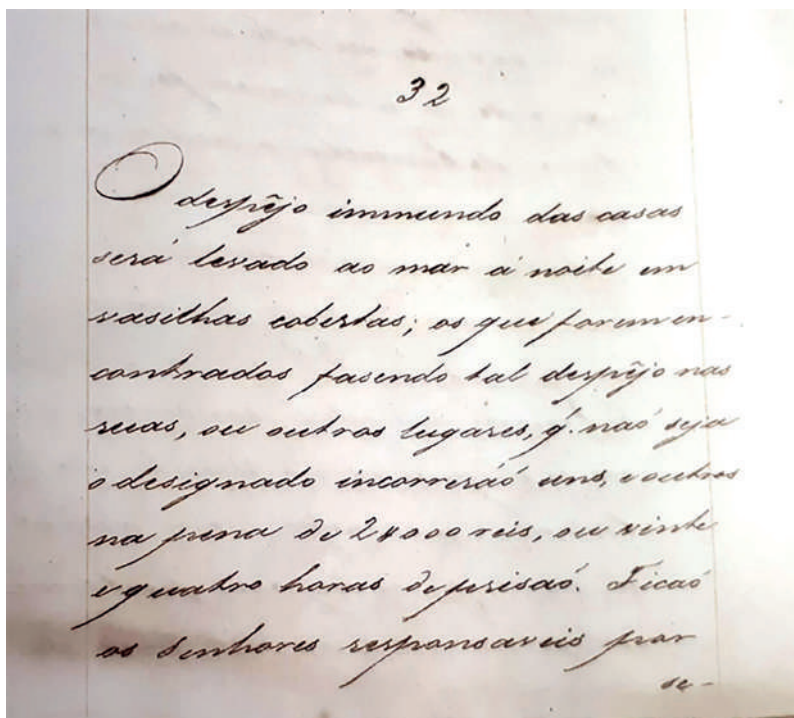 32
O despejo immundo das casas
será levado ao mar á noite em
vasilhas cobertas; os que forem en-
contrados fasendo tal despejo nas
ruas, ou outros lugares, q. naó seja
o designado incorreráó uns, e outros
na pena de 2#000 reis, ou vinte
e quatro horas de prisaó. Ficaó
os Senhores responsaveis por
se-